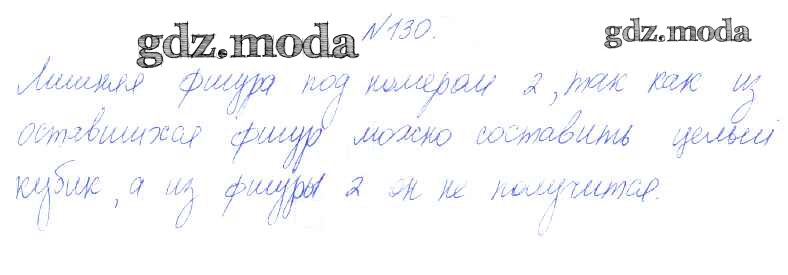 gdz.moda №130. gdz.moda
Лишняя фигура под номером 2, так как из
оставшихся фигур можно составить целый
кубик, а из фигуры 2 он не получится.